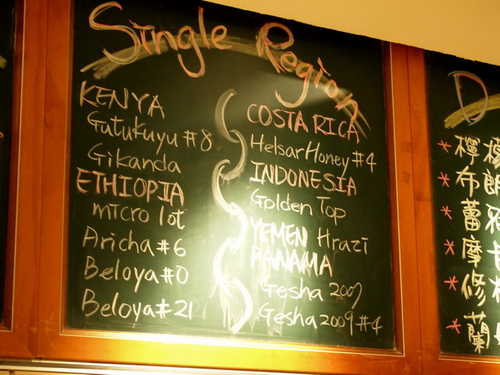 Single Region
KENYA
Gutukuyu #8
Gikanda
ETHIOPIA
micro lot
Aricha #6
Beloya #0
Beloya #21
COSTA RICA
Helsar Honey #4
INDONESIA
Golden Top
YEMEN Hrazi
PANAMA
Gesha 2007
Gesha 2009 #4
D
* 檸檬
* 布朗
* 蕾
* 摩
* 修
* 蘭